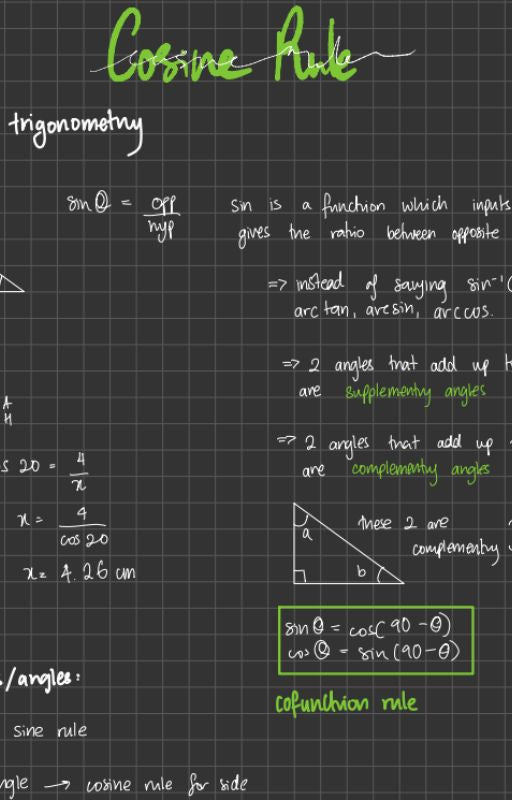 Cosine Rule
cosine rule
trigonometry
sin θ = opp
hyp
sin is a function which inputs
gives the ratio between opposite
=> instead of saying sin⁻¹(
arc tan, arcsin, arccos.
=> 2 angles that add up t
are supplementry angles
=> 2 angles that add up
are complementry angles
A
H
s 20 = 4
x
x = 4
cos 20
x = 4.26 cm
a
b
these 2 are
complementry
sin θ = cos(90 - θ)
cos θ = sin (90 - θ)
cofunction rule
s/angles:
sine rule
ngle → cosine rule for side